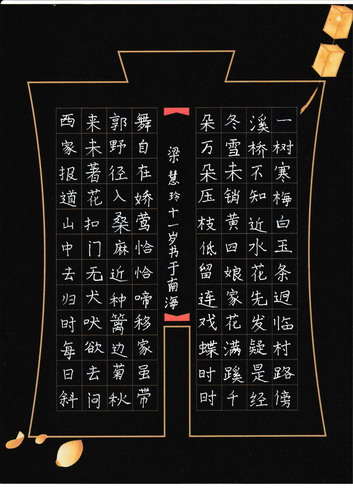 一树寒梅白玉条迥临村路傍
溪桥不知近水花先发疑是经
冬雪未销黄四娘家花满蹊千
朵万朵压枝低留连戏蝶时时
梁慧玲十一岁书于南海
舞自在娇莺恰恰啼移家虽带
郭野径入桑麻近种篱边菊秋
来未著花扣门无犬吠欲去问
西家报道山中去归时每日斜